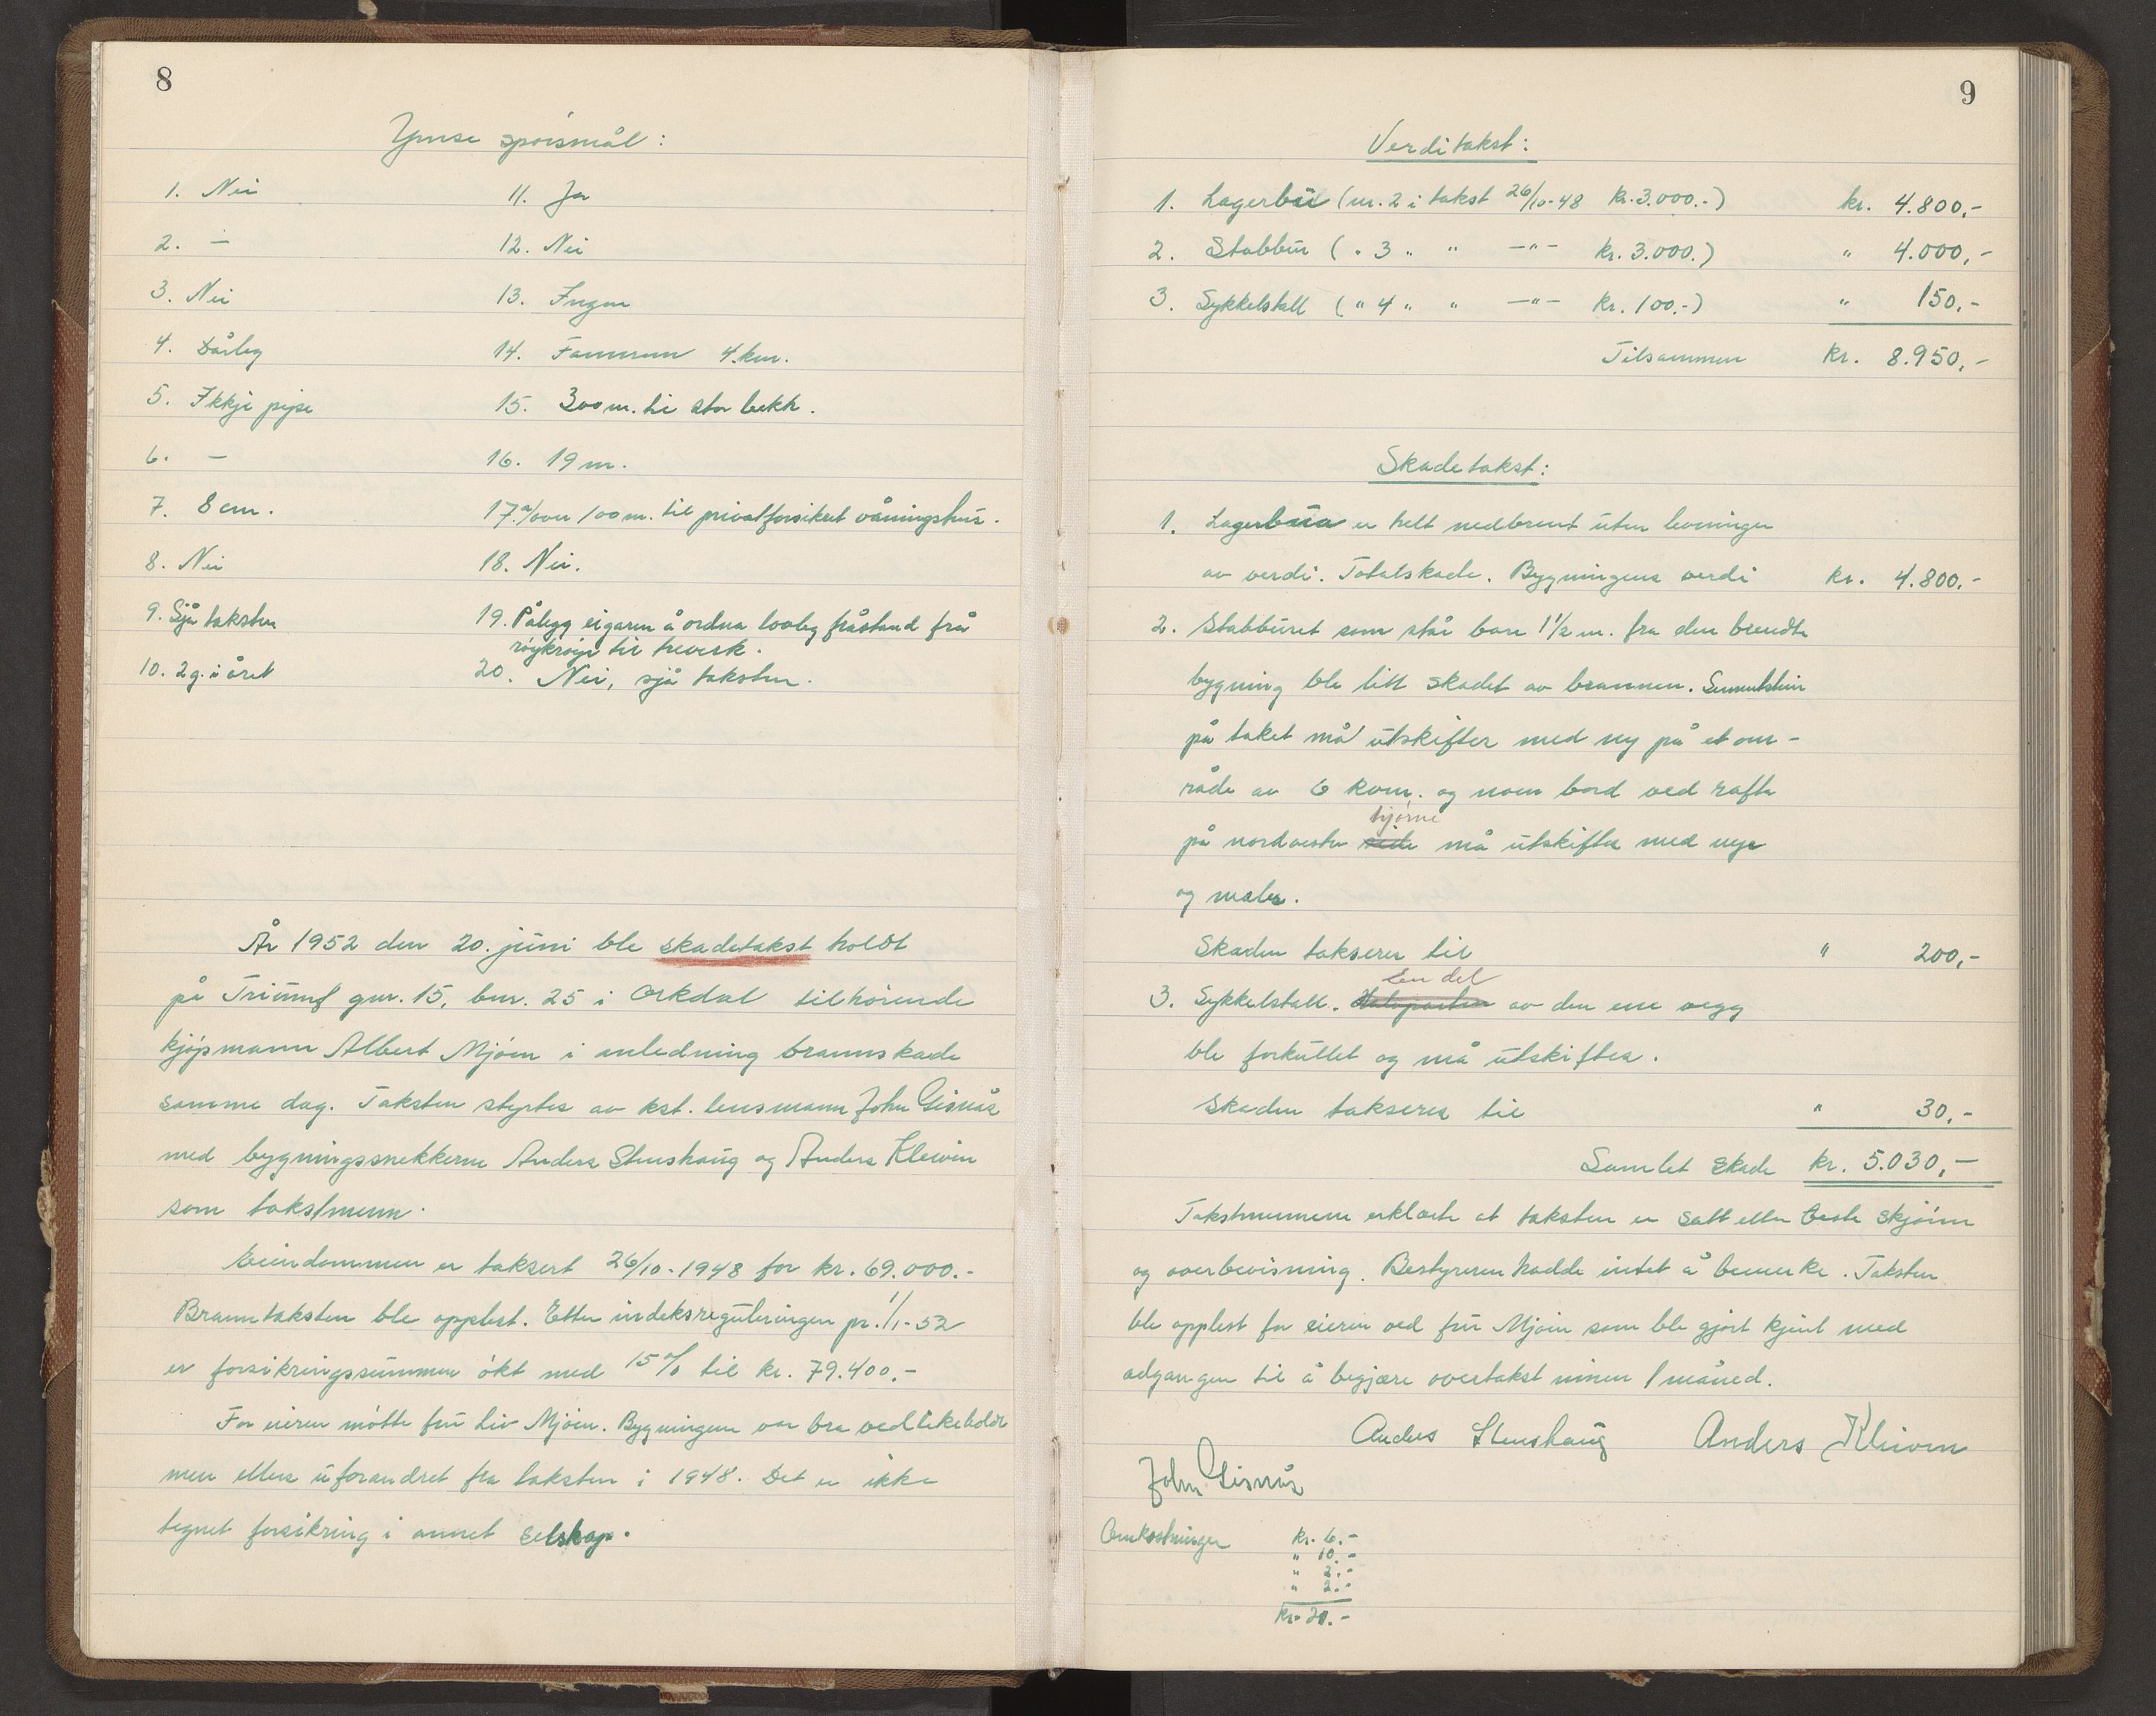 8
Ymse spørsmål:
1. Nei
2. –
3. Nei
4. Dårleg
5. Ikkje pipe
6. –
7. 8 cm.
8. Nei
9. Sjå taksten
10. 2 g. i året
11. Ja
12. Nei
13. Ingen
14. Fannrem 4 km.
15. 300 m. til stor bekk.
16. 19 m.
17. a/ over 100 m. til privatforsikret våningshus.
18. Nei.
19. Pålegg eigaren å ordna lovleg fråstand frå
røykrøyr til treverk.
20. Nei, sjå taksten.
År 1952 den 20. juni ble skadetakst holdt
på Triumf gnr. 15, bnr. 25 i Orkdal tilhørende
kjøpmann Albert Mjøen i anledning brannskade
samme dag. Taksten styrtes av kst. lensmann John Gisnås
med bygningssnekkerne Anders Stenshaug og Anders Kleiven
som takstmenn.
Eiendommen er taksert 26/10-1948 for kr. 69.000.-
Branntaksten ble opplest. Etter indeksreguleringen pr. 1/1-52
er forsikringssummen økt med 15 % til kr. 79.400.-
For eieren møtte fru Liv Mjøen. Bygningene var bra vedlikeholdt
men ellers uforandret fra taksten i 1948. Det er ikke
tegnet forsikring i annet selskap.
9
Verditakst:
1. Lagerbu (nr. 2 i takst 26/10-48 kr. 3.000.-) kr. 4.800,-
2. Stabbur ( " 3 " " —"— kr. 3.000.) " 4.000,-
3. Sykkelstall ( " 4 " " —"— kr. 100.-) " 150,-
Tilsammen kr. 8.950,-
Skadetakst:
1. Lagerbua er helt nedbrent uten levninger
av verdi. Totalskade. Bygningens verdi kr. 4.800.-
2. Stabburet som står bare 1½ m. fra den brendte
bygning ble litt skadet av brannen. Sementstein
på taket må utskiftes med ny på et om-
råde av 6 kvm. og noen bord ved rafte
hjørne
på nordvestre side må utskiftes med nye
og males.
Skaden takseres til " 200,-
En del
3. Sykkelstall. Halvparten av den ene vegg
ble forkullet og må utskiftes.
Skaden takseres til " 30,-
Samlet skade kr. 5.030,-
Takstmennene erklærte at taksten er satt etter beste skjønn
og overbevisning. Bestyreren hadde intet å bemerke. Taksten
ble opplest for eieren ved fru Mjøen som ble gjort kjent med
adgangen til å begjære overtakst innen 1 måned.
Anders Stenshaug Anders Kleiven
John Gisnås
Omkostninger kr. 6.-
" 10.-
" 2.-
" 2.-
kr. 20.-